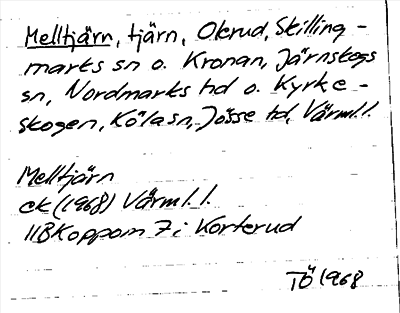 Melltjärn, tjärn, Olerud, Skilling-
marks sn o. Kronan, Järnskogs
sn, Nordmarks hd o. Kyrke-
skogen, Köla sn, Jösse hd, Värml. l.
Melltjärn
ek (1968) Värml. l.
11B Koppom 7 i Korterud
TÖ 1968